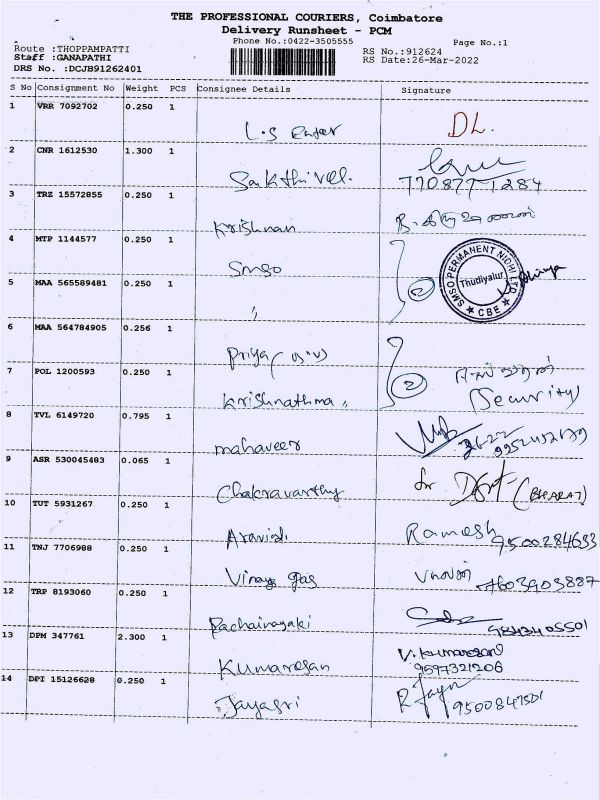 THE PROFESSIONAL COURIERS, Coimbatore
Delivery Runsheet - PCM
Phone No.:0422-3505555
Page No.:1
Route :THOPPAMPATTI
Staff :GANAPATHI
DRS No. :DCJB91262401
RS No.:912624
RS Date:26-Mar-2022
S No Consignment No Weight PCS Consignee Details Signature
1 VRR 7092702 0.250 1
L.S DL.
2 CNR 1612530 1.300 1
Sakthivel.
3 TRZ 15572855 0.250 1
Krishnan
4 MTP 1144577 0.250 1
Smso
SMSO PERMANENT NIDHI LTD
Thudiyalur
★ CBE ★
5 MAA 565589481 0.250 1
"
2
6 MAA 564784905 0.256 1
Priya
7 POL 1200593 0.250 1
Krishnathma 2 (Security)
8 TVL 6149720 0.795 1
mahaveer
9 ASR 530045483 0.065 1
Chakravarthy for (BHARAT)
10 TUT 5931267 0.250 1
Aravind. Ramesh 9500284633
11 TNJ 7706988 0.250 1
Vinayga gas 7603903887
12 TRP 8193060 0.250 1
Pachainayaki
13 DPM 347761 2.300 1
Kumaresan V. Kumaresan
9597321206
14 DPI 15126628 0.250 1
Jayasri R Jayn